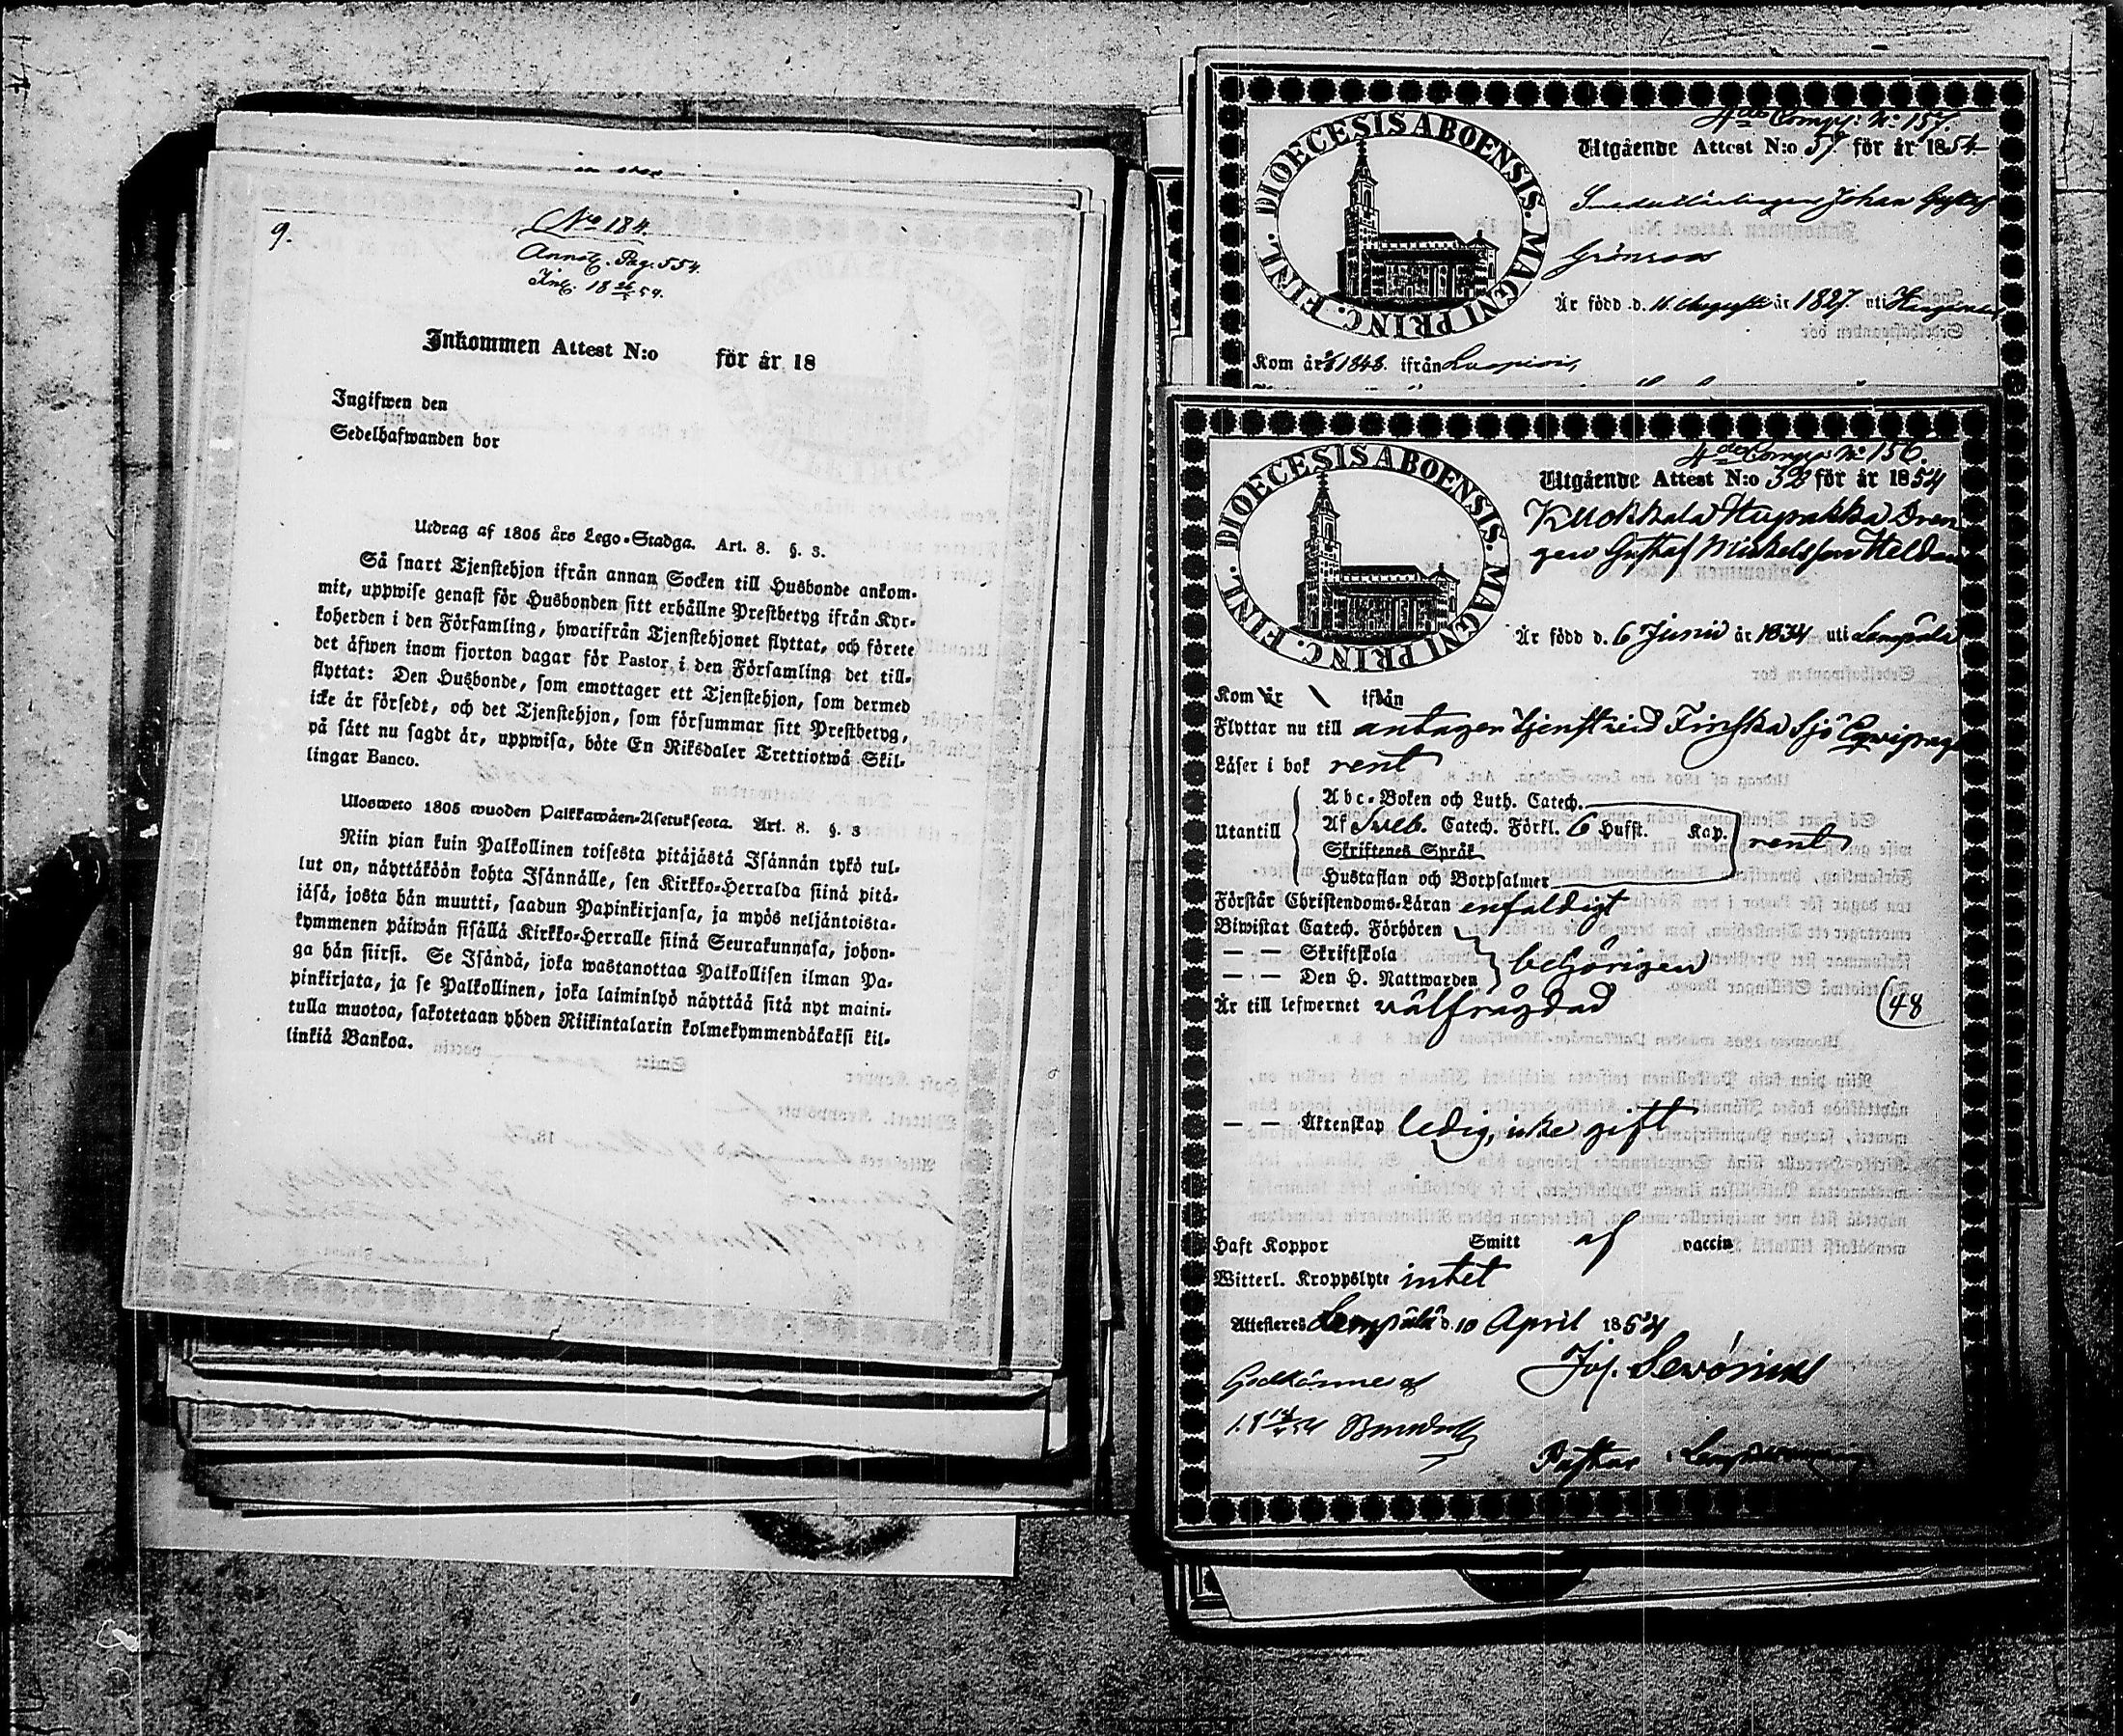 9.
No 184.
Annot. Pag. 554.
Ink. 18 26/5 54.
Inkommen Attest N:o för år 18
Ingifwen den
Sedelhafwanden bor
Utdrag af 1805 års Lego-Stadga. Art. 8. §. 3.
Så snart Tjenstehjon ifrån annan Socken till Husbonde ankom-
mit, uppwise genast för Husbonden sitt erhållne Prestbetyg ifrån Kyr-
koherden i den Församling, hwarifrån Tjenstehjonet flyttat, och förete
det äfwen inom fjorton dagar för Pastor i den Församling det till-
flyttat: Den Husbonde, som emottager ett Tjenstehjon, som dermed
icke är försedt, och det Tjenstehjon, som försummar sitt Prestbetyg,
på sätt nu sagdt är, uppwisa, böte En Riksdaler Trettiotwå Skil-
lingar Banco.
Ulosweto 1805 wuoden Palkkawäen-Asetuksesta. Art. 8. §. 3
Niin pian kuin Palkollinen toisesta pitäjästä Isännän tykö tul-
lut on, näyttäköön kohta Isännälle, sen Kirkko-Herralda siinä pitä-
jäsä, josta hän muutti, saadun Papinkirjansa, ja myös neljäntoista-
kymmenen päiwän sisällä Kirkko-Herralle siinä Seurakunnasa, johon-
ga hän siirsi. Se Isändä, joka wastanottaa Palkollisen ilman Pa-
pinkirjata, ja se Palkollinen, joka laiminlyö näyttää sitä nyt maini-
tulla muotoa, sakotetaan yhden Riikintalarin kolmekymmendäkaksi kil-
linkiä Bankoa.
DIOECESIS ABOENSIS. MAGNI PRINC. FINL.
4de Comp: No 157.
Utgående Attest N:o 57 för år 1854
Johan Gustaf
Grönroos
Är född d. 11 Augusti år 1827. uti
Kom år 1848. ifrån
DIOECESIS ABOENSIS. MAGNI PRINC. FINL.
4de Comp: No 156.
Utgående Attest N:o 32 för år 1854
Kuokkala Hupakka Dren
gen Gustaf Mickelsson Heldan
Är född d. 6 Junii år 1834 uti Lempälä
Kom år ifrån
Flyttar nu till antagen tjenst vid Finska Sjö Equipage
Läser i bok rent
Utantill
Abc-Boken och Luth. Catech.
Af Sveb. Catech. Förkl. 6 Hufst. Kap. rent
Skriftenes Språk
Hustaflan och Botpsalmer
Förstår Christendoms-Läran enfaldigt
Biwistat Catech. Förhören
— — Skriftskola behörigen
— — Den H. Nattwarden
Är till lefwernet välfrägdad
48
— — Äktenskap ledig, icke gift
Haft Koppor Smitt af vaccin
Witterl. Kroppslyte intet
Attesteres Lempälä d. 10 April 1854
Jos. Sevónius
Godkännes af
Pastor i Lempälä